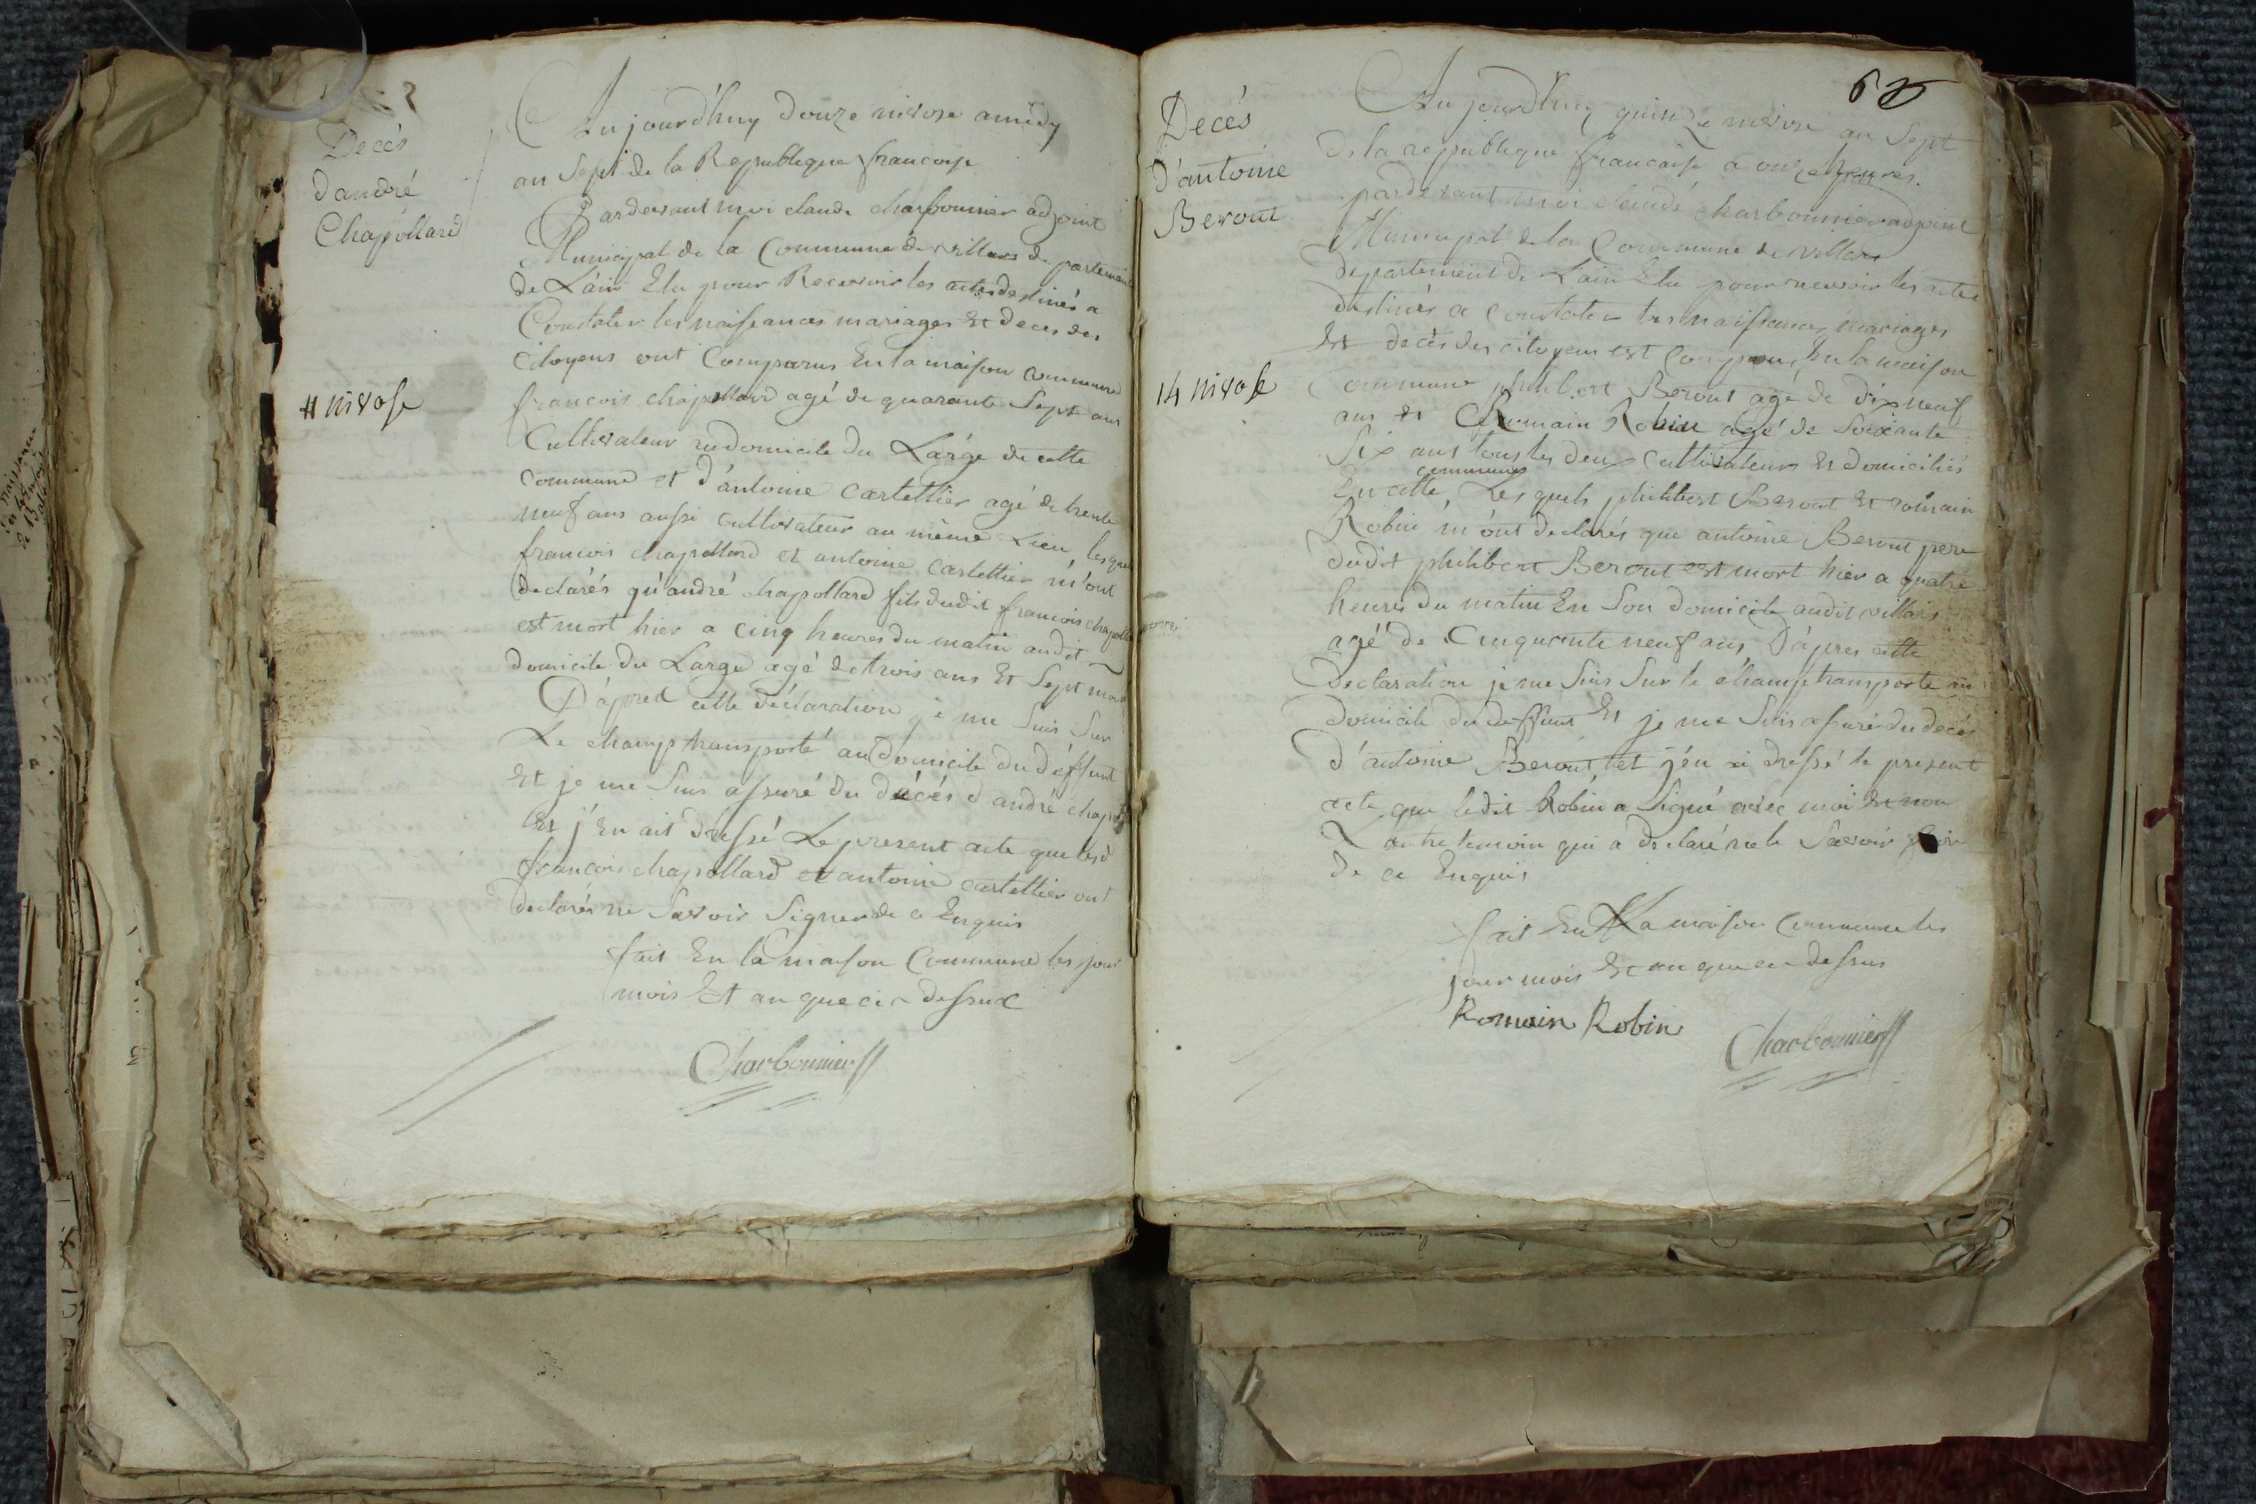 Decés
d'andré
Chapollard
11 nivose
Aujourd'huy douze nivose a midy
an Sept de la Republique francoise
Pardevant moi claude charbonnier adjoint
Municipal de la Commune de villars departement
de L'ain Elu pour Recevoir les actes destinés a
Constater les naissances mariages Et deces des
citoyens ont Comparus En la maison commune
francois chapollard agé de quarante Sept ans
Cultivateur au domicile du Large de cette
commune et d'antoine cartellier agé de trente
neuf ans aussi cultivateur au même Lieu lesquels
francois chapollard et antoine cartellier m'ont
declarés qu'andré chapollard fils dudit francois chapollard
est mort hier a cinq heures du matin audit
domicile du Large agé de trois ans Et Sept mois
D'apres cette déclaration je me Suis Sur
Le champ transporté au domicile du déffunt
Et je me Suis assuré du décés d'andré chapoll
Et j'En ait dressé Le present acte que lesd
francois chapollard et antoine cartellier ont
declarés ne Savoir Signer de ce Enquis
fait En la maison Commune les jour
mois Et an que ci-dessus
Charbonnier
60
Decés
d'antoine
Beroud
14 nivose
Aujourd'huy quinze nivose an Sept
de la republique francaise a onze heures
pardevant moi claude charbonnier adjoint
Municipal de la Commune de villars
departement de L'ain Elu pour recevoir les actes
destinés a constater les naissances mariages
Et decès des citoyens est comparu En la maison
Commune philibert Beront agé de dix neuf
ans et Romain Robin agé de Soixante
Six ans tous les deux cultivateurs Et domiciliés
commune
En cette Lesquels philibert Beront Et romain
Robin m'ont declarés que antoine Beront pere
dudit philibert Beront est mort hier a quatre
heures du matin En Son domicile audit villars
agé de Cinquante neuf ans D'après cette
declaration je me Suis Sur le champ transporté au
domicile du deffunt Et je me Suis assuré du decés
d'antoine Beront et j'en ai dressé le present
acte que ledit Robin a Signé avec moi Et non
L'autre temoin qui a declaré ne le Savoir faire
de ce Enquis
fait En La maison Commune les
jour mois Et an que ci-dessus
Romain Robin
Charbonnier